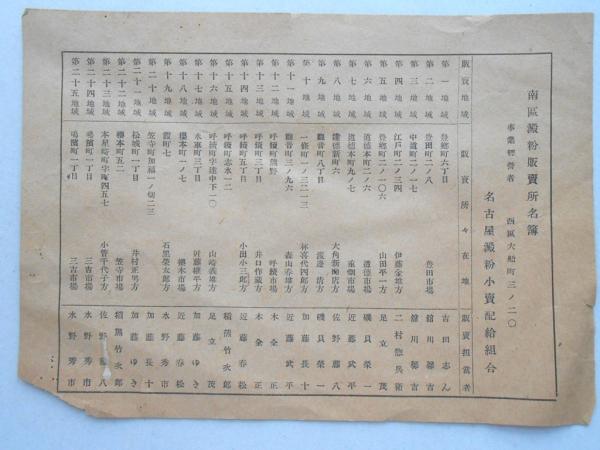 南區澱粉販賣所名簿
事業經營者 西區大船町三ノ二〇
名古屋澱粉小賣配給組合
販賣地域 販賣所々在地 販賣擔當者
第一地域 豊郷町六丁目 吉田志ん
第二地域 豊田町二ノ八 豊田市場 舘川彌吉
第三地域 中道町二ノ一七 舘川彌吉
第四地域 江戸町二ノ三四 伊藤金雄方 二村惣兵衞
第五地域 豊郷町二ノ一〇六 山田平一方 足立茂
第六地域 道德本町二ノ六 道德市場 磯貝榮一
第七地域 道德本町九ノ七 近藤武平
第八地域 道德新町六 大角新聞店方 佐野藤八
第九地域 觀音町八丁目 渡邊清方 磯貝榮一
第十地域 一條町一ノ三二三 林喜代四郎方 加藤長十
第十一地域 觀音町三ノ九六 森山春雄方 近藤武平
第十二地域 呼續町熊野 呼續市場 木全正
第十三地域 呼續町三丁目 井口作藏方 木全正
第十四地域 呼續町五丁目 小田小三郎方 近藤春松
第十五地域 呼續町志水一二 稲熊竹次郎
第十六地域 呼續町字達中下一〇 山崎義雄方 足立茂
第十七地域 水車町三丁目 近藤權平方 加藤ゆき
第十八地域 櫻本町一ノ七 櫻本市場 近藤春松
第十九地域 霞町七 石黒榮太郎方 水野秀市
第二十地域 笠寺町加福一ノ割二三 加藤長十
第二十一地域 松城町一丁目 井村正男方 加藤ゆき
第二十二地域 櫻本町五二 笠寺市場 稲熊竹次郎
第二十三地域 本星崎町字町四五七 小菅千代子方 佐野藤八
第二十四地域 鳴濱町一丁目 三吉市場 水野秀市
第二十五地域 鳴濱町一丁目 三吉市場 水野秀市